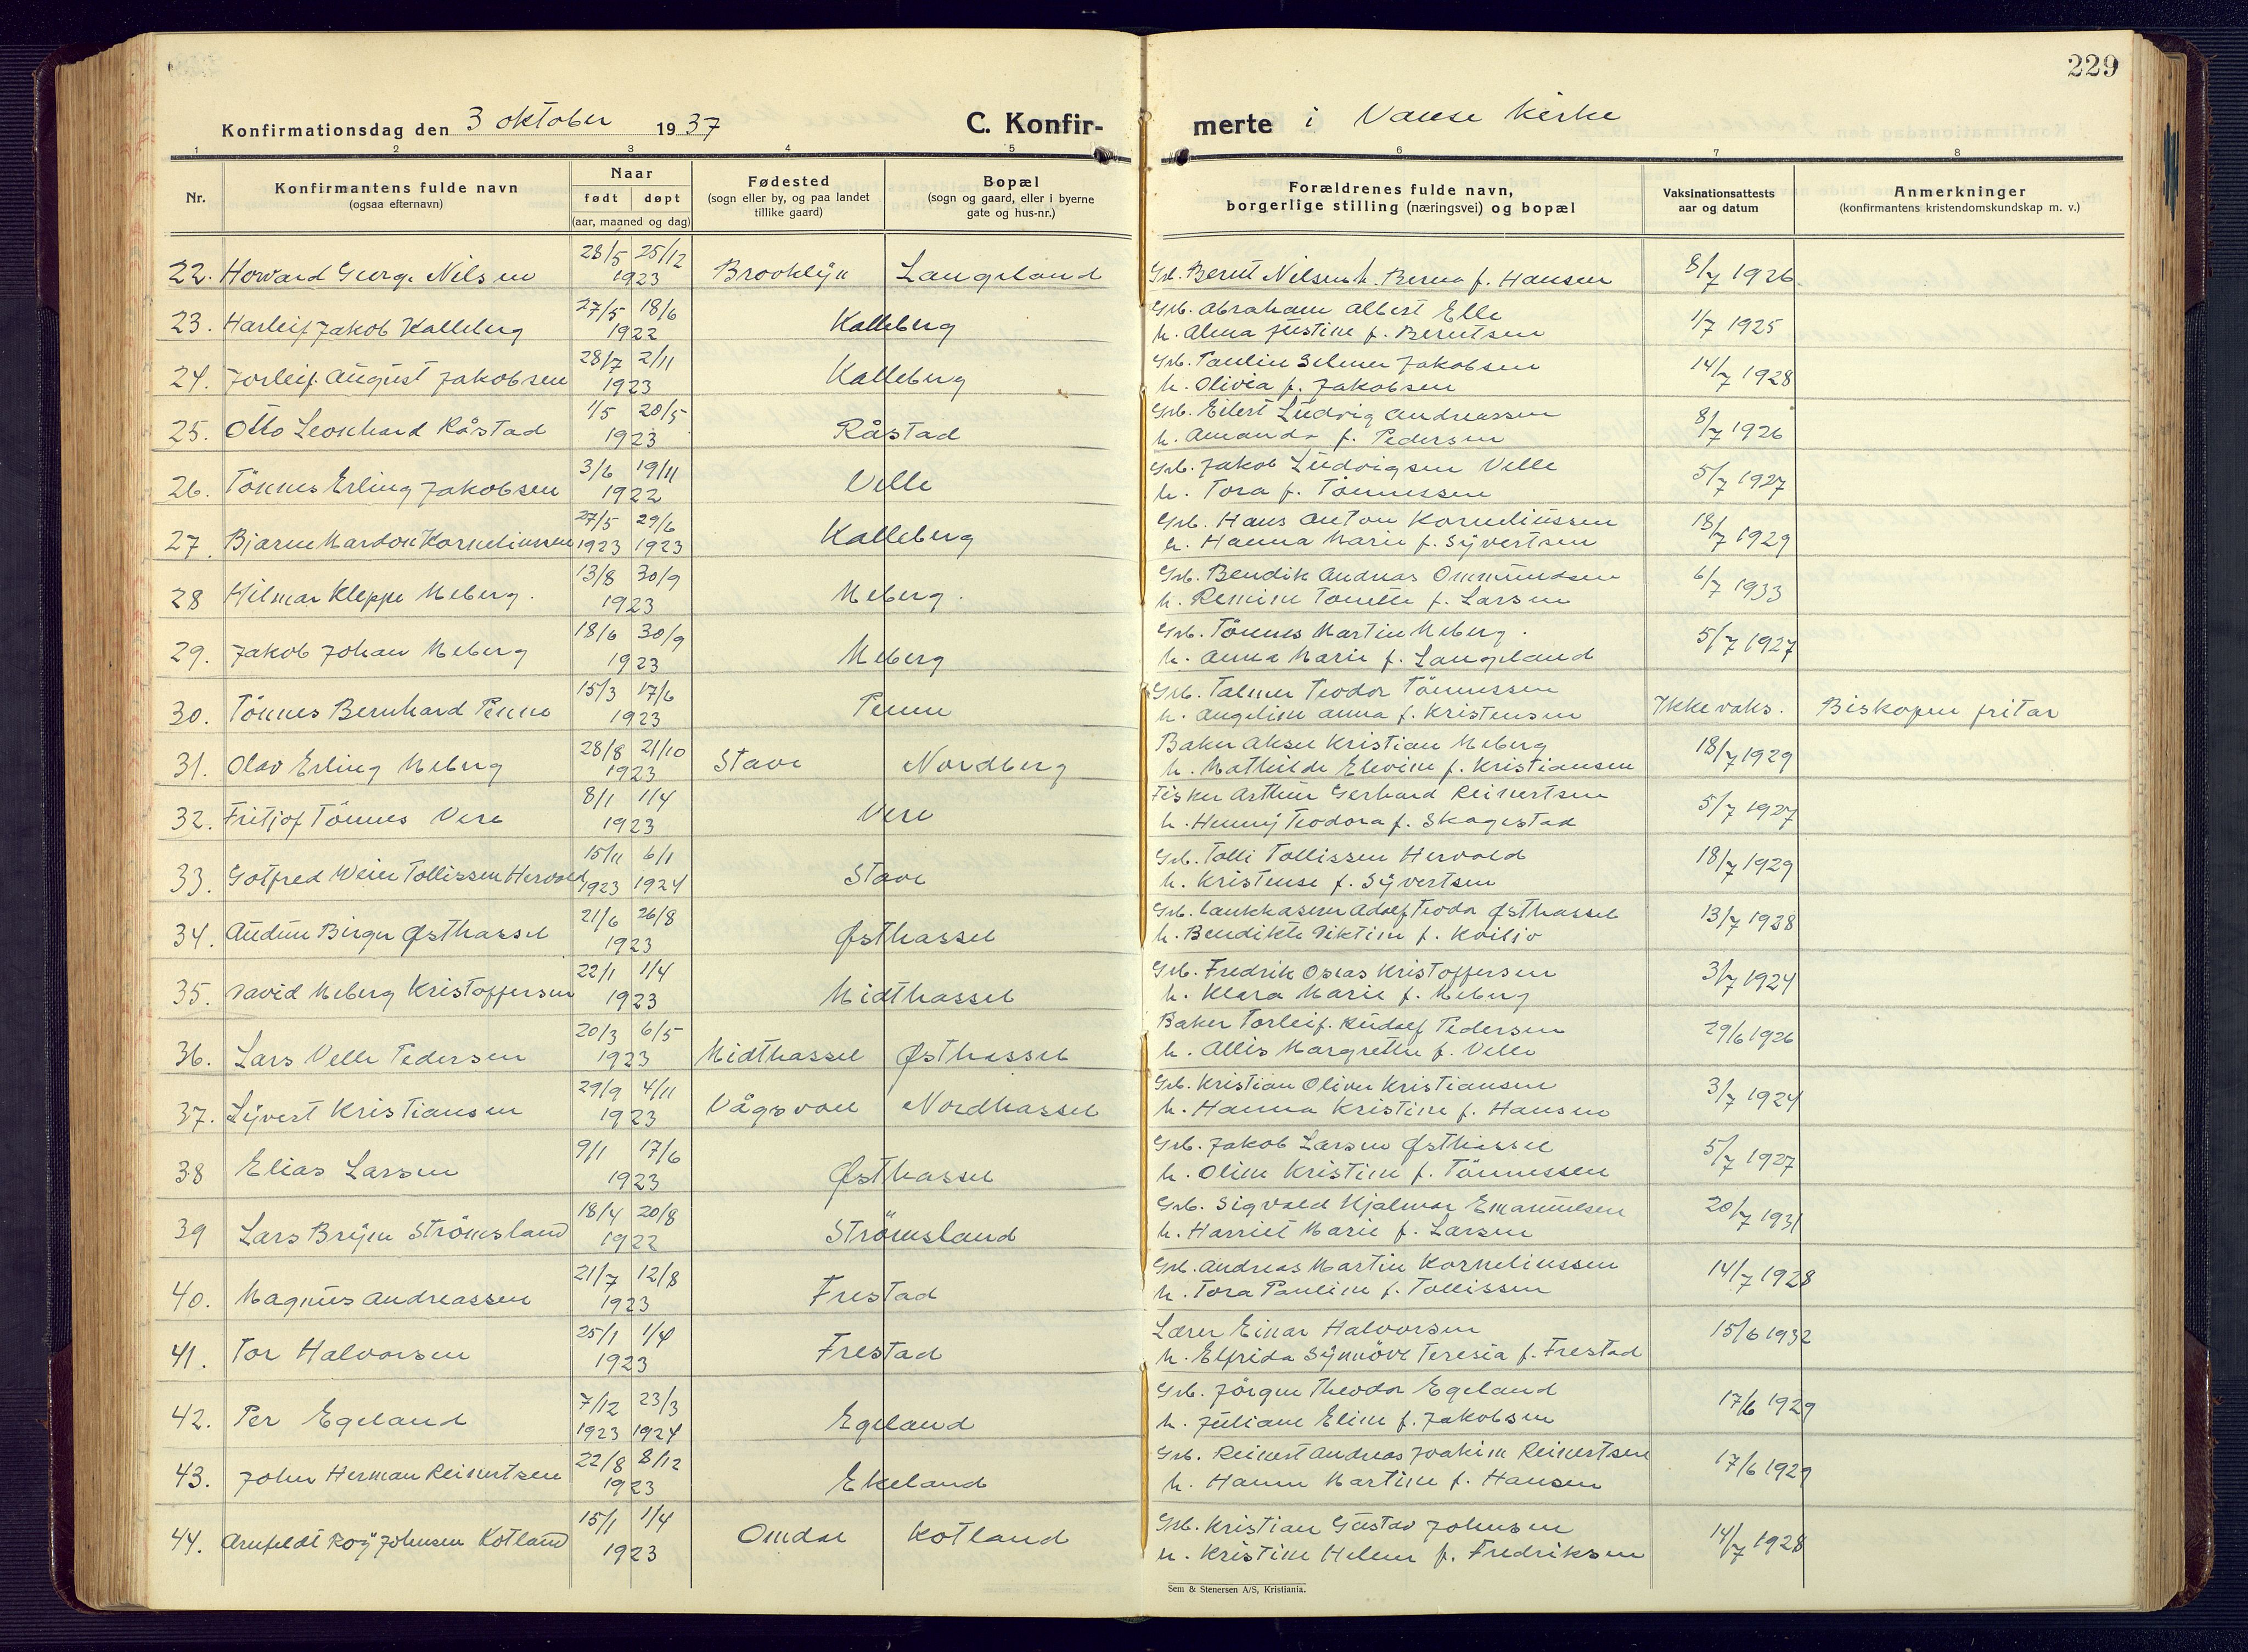 229
Konfirmationsdag den 3 oktober 1937 C. Konfir-
merte i Vanse kirke
1 2 3 4 5 6 7 8
Nr.
Konfirmantens fulde navn
(ogsaa efternavn)
Naar
født døpt
(aar, maaned og dag)
Fødested
(sogn eller by, og paa landet
tillike gaard)
Bopæl
(sogn og gaard, eller i byerne
gate og hus-nr.)
Forældrenes fulde navn,
borgerlige stilling (næringsvei) og bopæl
Vaksinationsattests
aar og datum
Anmerkninger
(konfirmantens kristendomskundskap m. v.)
22. Howard Georg Nilsen 28/5 25/12 1923 Brooklÿn Langeland
Grb. Bernt Nilsen h. Berna f. Hansen 8/7 1926
23. Harleif Jakob Kalleberg 27/5 18/6 1922 Kalleberg
Grb. Abraham Albert Elle
h. Alma Justine f. Berntsen 1/7 1925
24. Torleif August Jakobsen 28/7 2/11 1923 Kalleberg
Grb. Paulin Selmer Jakobsen
h. Olivia f. Jakobsen 14/7 1928
25. Otto Leonhard Råstad 1/5 20/5 1923 Råstad
Grb. Eilert Ludvig Andreassen
h. Amanda f. Pedersen 8/7 1926
26. Tönnes Erling Jakobsen 3/6 19/11 1922 Velle
Grb. Jakob Ludvigsen Velle
h. Tora f. Tönnessen 5/7 1927
27. Bjarne Mardon Korneliussen 27/5 1923 29/6 1923 Kalleberg
Grb. Hans Anton Korneliussen
h. Hanna Marie f. Sÿvertsen 18/7 1929
28 Hilmar Kleppe Meberg. 13/8 30/9 1923 Meberg.
Grb. Bendik Andreas Ommundsen
h. Remine Tonette f. Larsen 6/7 1933
29. Jakob Johan Meberg 18/6 30/9 1923 Meberg
Grb. Tönnes Martin Meberg.
h. Anna Marie f. Langeland 5/7 1927
30. Tönnes Bernhard Penne 15/3 17/6 1923 Penne
Grb. Talmer Teodor Tönnessen
h. Angeline Anna f. Kristensen Ikke vaks. Biskopen fritar
31. Olav Erling Meberg 28/8 21/10 1923 Stave Nordberg
Baker Aksel Kristian Meberg
h. Mathilde Elevine f. Kristiansen 18/7 1929
32. Fritjof Tönnes Vere 8/1 1/4 1923 Vere
Fisker Arthur Gerhard Reinertsen
h. Hennÿ Teodora f. Skagestad 5/7 1927
33. Gotfred Weier Tollissen Hervold 15/11 1923 6/1 1924 Stave
Grb. Tolli Tollissen Hervold
h. Kristense f. Sÿvertsen 18/7 1929
34. Audun Birger Østhassel 21/6 26/8 1923 Østhassel
Grb. Adolf Teodor Østhassel
h. Bendikte f. Kviljo 13/7 1928
35. David Meberg Kristoffersen 22/1 1/4 1923 Midthassel
Grb. Fredrik Oseas Kristoffersen
h. Klara Marie f. Meberg 3/7 1924
36. Lars Velle Pedersen 20/3 6/5 1923 Midthassel Østhassel
Baker Torleif. Rudolf Pedersen
h. Allis Margrethe f. Velle 29/6 1926
37. Sÿvert Kristiansen 29/9 4/11 1923 Vågsvoll Nordhassel
Grb. Kristian Oliver Kristiansen
h. Hanna Kristine f. Hansen 3/7 1924
38 Elias Larsen 9/1 17/6 1923 Østhassel
Grb. Jakob Larsen Østhassel
h. Oline Kristine f. Tönnessen 5/7 1927
39 Lars Brÿn Strömsland 18/4 20/8 1922 Strömsland
Grb. Sigvald Hjalmar Emanuelsen
h. Harriet Marie f. Larsen 20/7 1931
40. Magnus Andreassen 21/7 12/8 1923 Frestad
Grb. Andreas Martin Korneliussen
h. Tora Pauline f. Tollissen 14/7 1928
41. Tor Halvorsen 25/1 1/4 1923 Frestad
Lærer Einar Halvorsen
h. Elfrida Sÿnnöve Teresia f. Frestad 15/6 1932
42. Per Egeland 7/12 1923 23/3 1924 Egeland
Grb. Jörgen Theodor Egeland
h. Juliane Eline f. Jakobsen 17/6 1929
43. John Herman Reinertsen 22/8 8/12 1923 Ekeland
Grb. Reinert Andreas Joakim Reinertsen
h. Hanne Martine f. Hansen 17/6 1929
44. Arnfeldt Roÿ Johnsen Kotland 15/1 1/4 1923 Omdal Kotland
Grb. Kristian Gustav Johnsen
h. Kristine Helene f. Fredriksen 14/7 1928
Sem & Stenersen A/S, Kristiania.